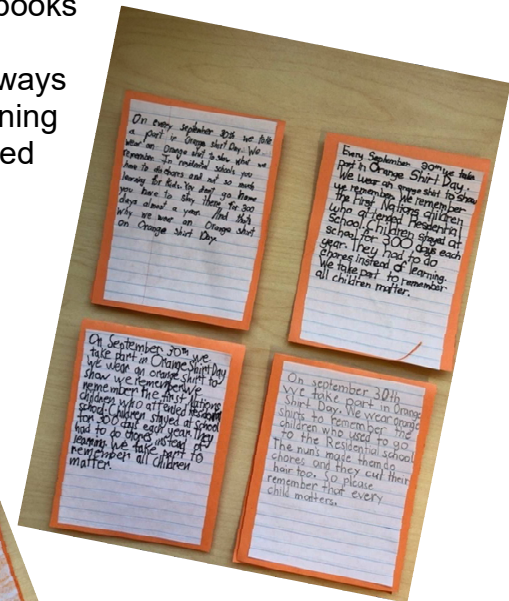 books
ways
ning
ed
On every september 30th we take
a part in Orange Shirt Day. We
wear an Orange shirt to show what we
remember. In residential schools you
have to do chores and not so much
learning for kids. You don't go home
you have to stay there for 300
days almost a year. And that's
why we wear an Orange shirt
on Orange Shirt Day.
Every September 30th we take
part in Orange Shirt Day.
We wear an orange shirt to show
we remember. We remember
the First Nations children
who attended Residential
School. Children stayed at
school for 300 days each
year. They had to do
chores instead of learning.
We take part to remember
all children matter.
On September 30th we
take part in Orange Shirt Day
We wear an orange shirt to
show we remember. We
remember the First Nations
children who attended
school. Children stayed at school
for 300 days each year. They
had to do chores instead of
learning. We take part to
remember all children
matter.
On september 30th
we take part in Orange
Shirt Day. We wear orange
shirts to remember the
children who used to go
to the Residential school
The nuns made them do
chores and they cut their
hair too. So please
remember that every
child matters.